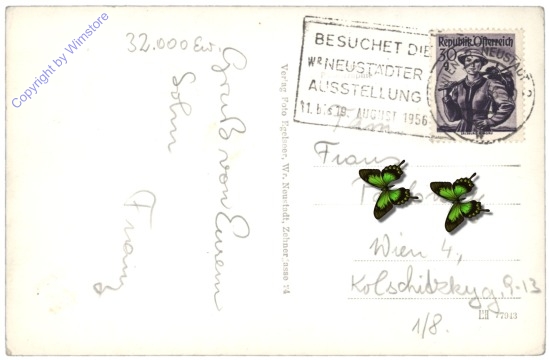 Copyright by Wimstore
32.000 Ew.
Gruß von Eurem
Sohn
Franz
Verlag Foto Egelseer, Wr. Neustadt, Zehnergasse 24
BESUCHET DIE
WR NEUSTÄDTER
AUSSTELLUNG
11. bis 19. AUGUST 1956
Republik Österreich
30
NEUSTADT 2
Fam.
Franz
Wien 4,
Kolschitzkyg. 9-13
1/8.
77943